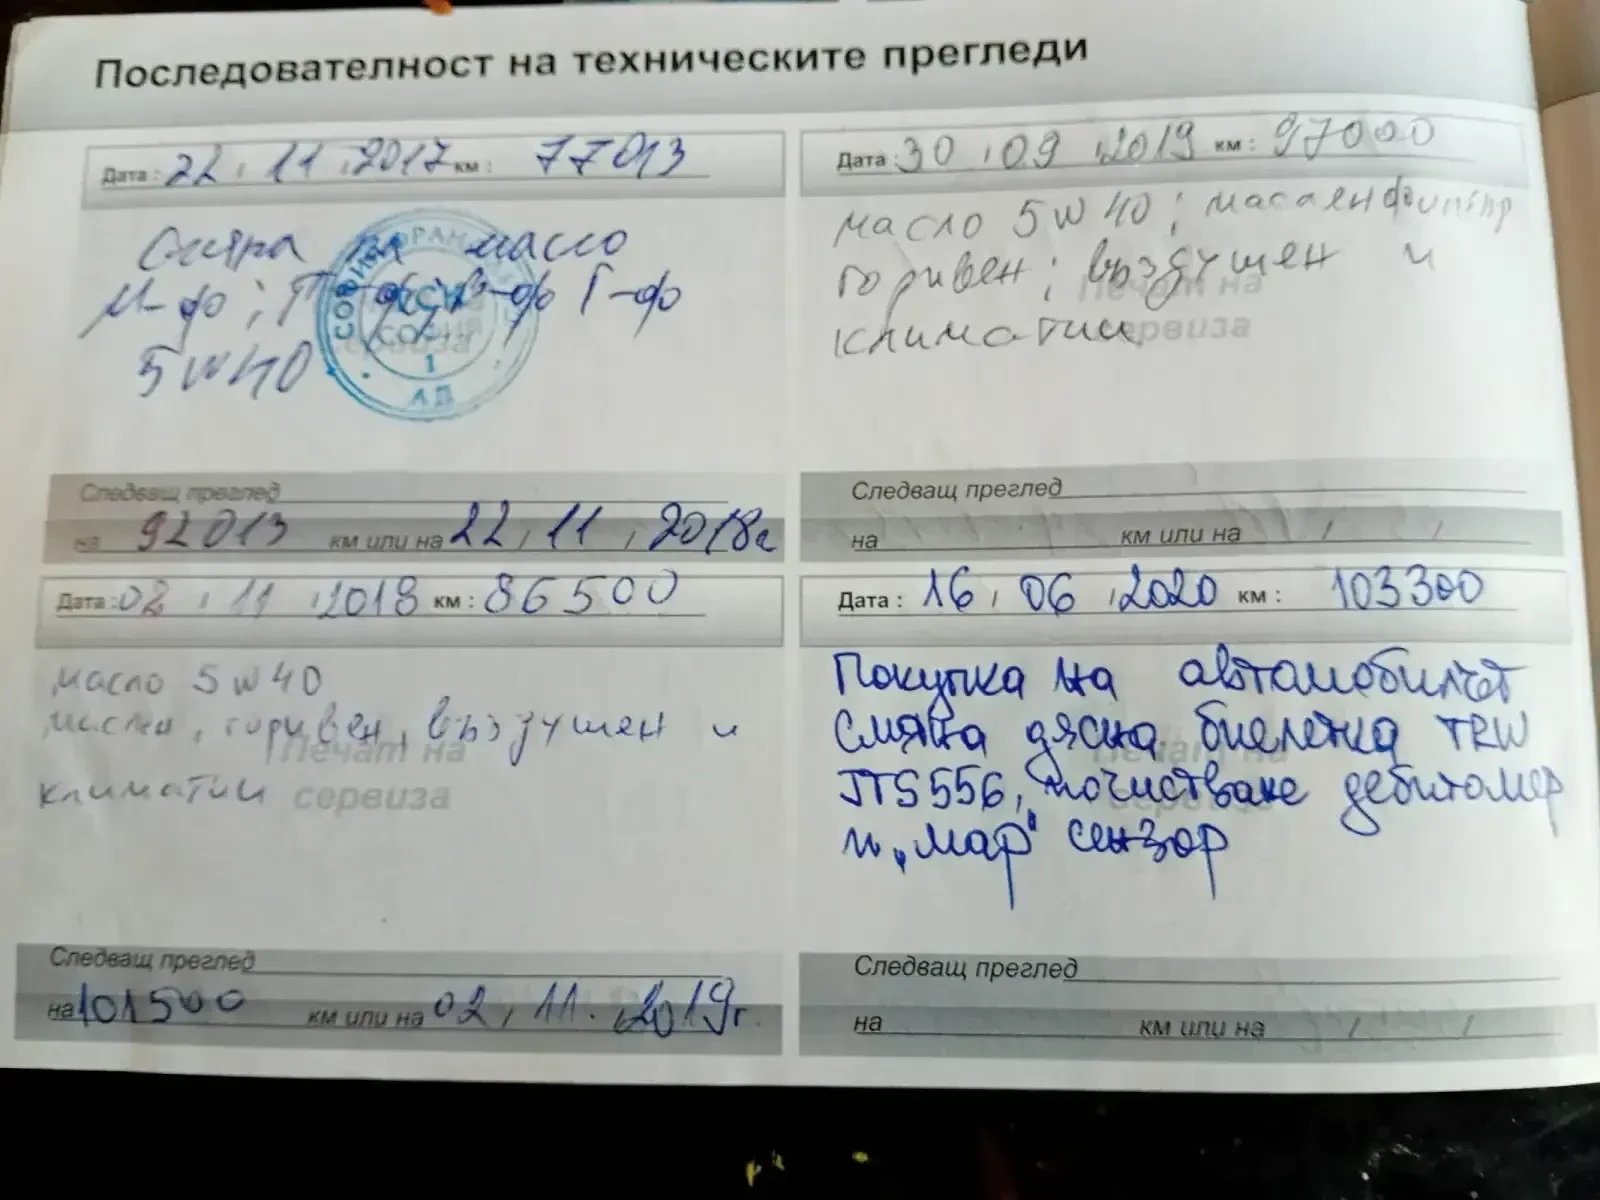 Последователност на техническите прегледи
Дата : 22 . 11 . 2017 км : 77013
Смяна на масло
М-ф ; П В-ф Г-ф
5W40
СОФИЯ
1
АД
Печат на
сервиза
Следващ преглед
на 92013 км или на 22 . 11 . 2018г
Дата : 02 . 11 . 2018 км : 86500
масло 5W40
маслен, горивен, въздушен и
климатик
Печат на
сервиза
Следващ преглед
на 101500 км или на 02 . 11 . 2019г.
Дата : 30 . 09 . 2019 км : 97000
масло 5W40 ; маслен филтър
горивен ; въздушен и
климатик
Печат на
сервиза
Следващ преглед
на км или на
Дата : 16 . 06 . 2020 км : 103300
Покупка на автомобилът
Смяна дясна биелетка TRW
JTS556, почистване дебитомер
и „мар" сензор
Печат на
сервиза
Следващ преглед
на км или на